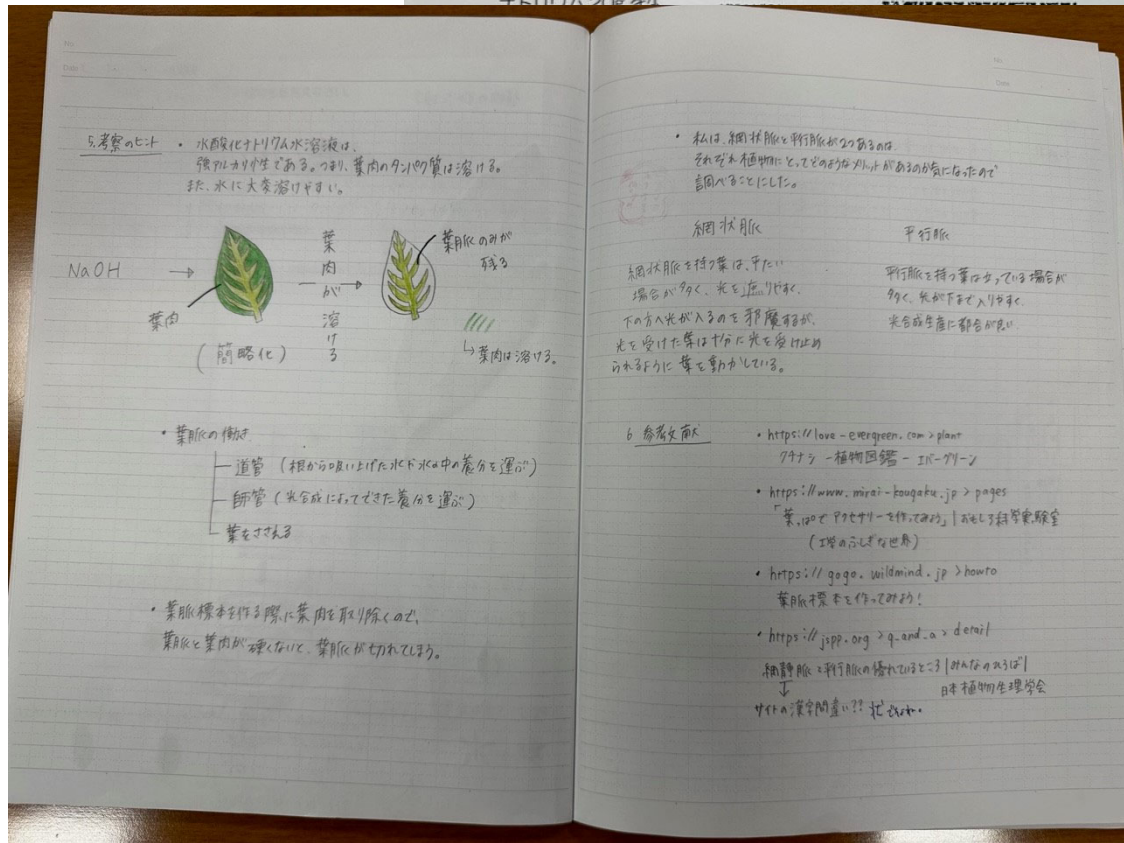 No.
Date
5.考察のヒント ・水酸化ナトリウム水溶液は、
強アルカリ性である。つまり、葉肉のタンパク質は溶ける。
また、水に大変溶けやすい。
NaOH →
葉肉
(簡略化)
葉肉が溶ける
葉脈のみが
残る
↳葉肉は溶ける。
・葉脈の働き
道管 (根から吸い上げた水や水の中の養分を運ぶ)
師管 (光合成によってできた養分を運ぶ)
葉をささえる
・葉脈標本を作る際に葉肉を取り除くので、
葉脈と葉肉が硬くないと、葉脈が切れてしまう。
No.
Date
・私は、網状脈と平行脈が2つあるのは、
それぞれ植物にとってどのようなメリットがあるのか気になったので
調べることにした。
網状脈
網状脈を持つ葉は、平たい
場合が多く、光を遮りやすく、
下の方へ光が入るのを邪魔するが、
光を受けた葉は十分に光を受け止め
られるように葉を動かしている。
平行脈
平行脈を持つ葉は立っている場合が
多く、光が下まで入りやすく、
光合成生産に都合が良い。
6 参考文献
・https://love-evergreen.com>plant
クチナシ -植物図鑑- エバーグリーン
・https://www.mirai-kougaku.jp>pages
「葉っぱでアクセサリーを作ってみよう」|おもしろ科学実験室
(工学のふしぎな世界)
・https://gogo.wildmind.jp>howto
葉脈標本を作ってみよう!
・https://jspp.org>q_and_a>detail
網静脈と平行脈の優れているところ|みんなのひろば|
日本植物生理学会
↓
サイトの漢字間違い??